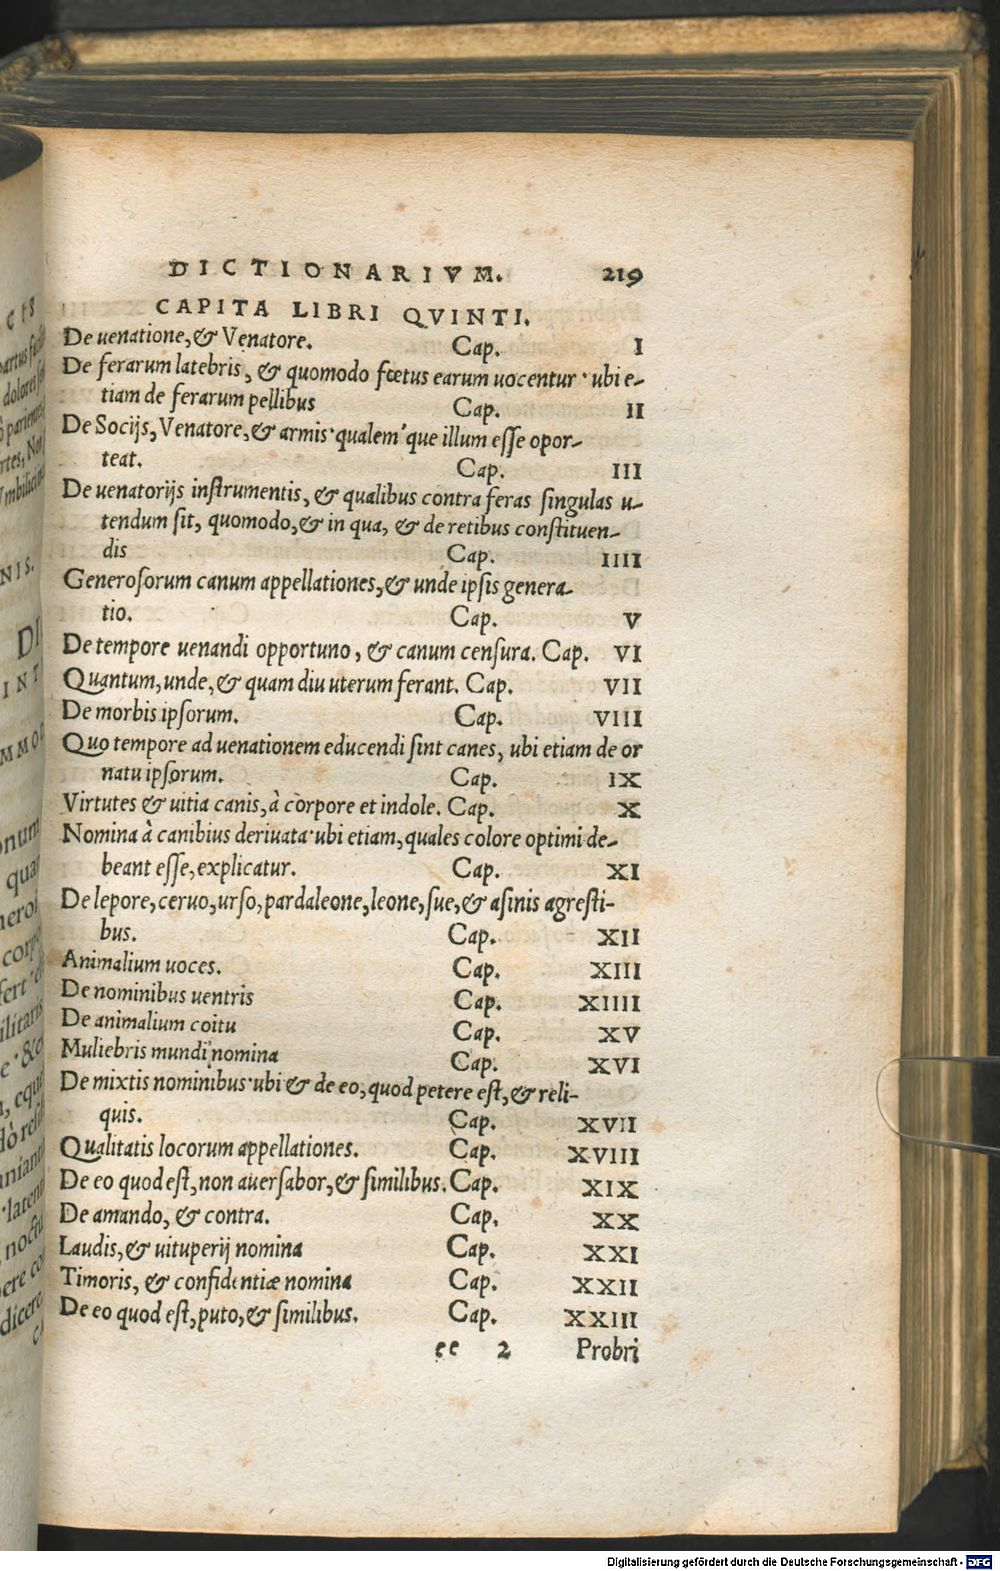 DICTIONARIVM. 219
CAPITA LIBRI QVINTI.
De uenatione, & Venatore. Cap. I
De ferarum latebris, & quomodo fœtus earum uocentur · ubi e-
tiam de ferarum pellibus Cap. II
De Socijs, Venatore, & armis · qualem'que illum esse opor-
teat. Cap. III
De uenatorijs instrumentis, & qualibus contra feras singulas u-
tendum sit, quomodo, & in qua, & de retibus constituen-
dis Cap. IIII
Generosorum canum appellationes, & unde ipsis genera-
tio. Cap. V
De tempore uenandi opportuno, & canum censura. Cap. VI
Quantum, unde, & quam diu uterum ferant. Cap. VII
De morbis ipsorum. Cap. VIII
Quo tempore ad uenationem educendi sint canes, ubi etiam de or
natu ipsorum. Cap. IX
Virtutes & uitia canis, à corpore et indole. Cap. X
Nomina à canibius deriuata · ubi etiam, quales colore optimi de-
beant esse, explicatur. Cap. XI
De lepore, ceruo, urso, pardaleone, leone, sue, & asinis agresti-
bus. Cap. XII
Animalium uoces. Cap. XIII
De nominibus uentris Cap. XIIII
De animalium coitu Cap. XV
Muliebris mundi nomina Cap. XVI
De mixtis nominibus · ubi & de eo, quod petere est, & reli-
quis. Cap. XVII
Qualitatis locorum appellationes. Cap. XVIII
De eo quod est, non auersabor, & similibus. Cap. XIX
De amando, & contra. Cap. XX
Laudis, & uituperij nomina Cap. XXI
Timoris, & confidentiæ nomina Cap. XXII
De eo quod est, puto, & similibus. Cap. XXIII
ee 2 Probri
Digitalisierung gefördert durch die Deutsche Forschungsgemeinschaft - DFG